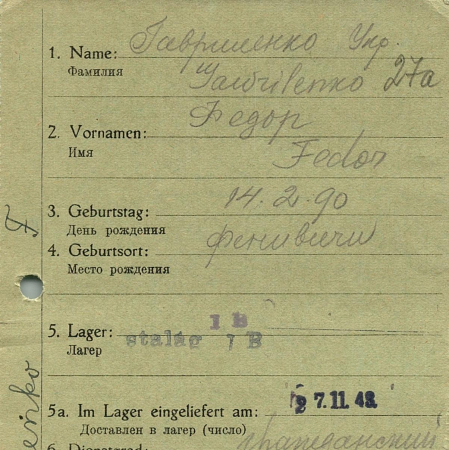 Гавриленко Укр.
1. Name:
Фамилия
Gawrilenko 27a
Федор
2. Vornamen:
Имя
Fedor
14.2.90
3. Geburtstag:
День рождения
4. Geburtsort:
Место рождения
1 B
5. Lager: stalag 1 B
Лагер
5a. Im Lager eingeliefert am: 27.11.43.
Доставлен в лагер (число)
гражданский
6. Dienstgrad:
F
enko